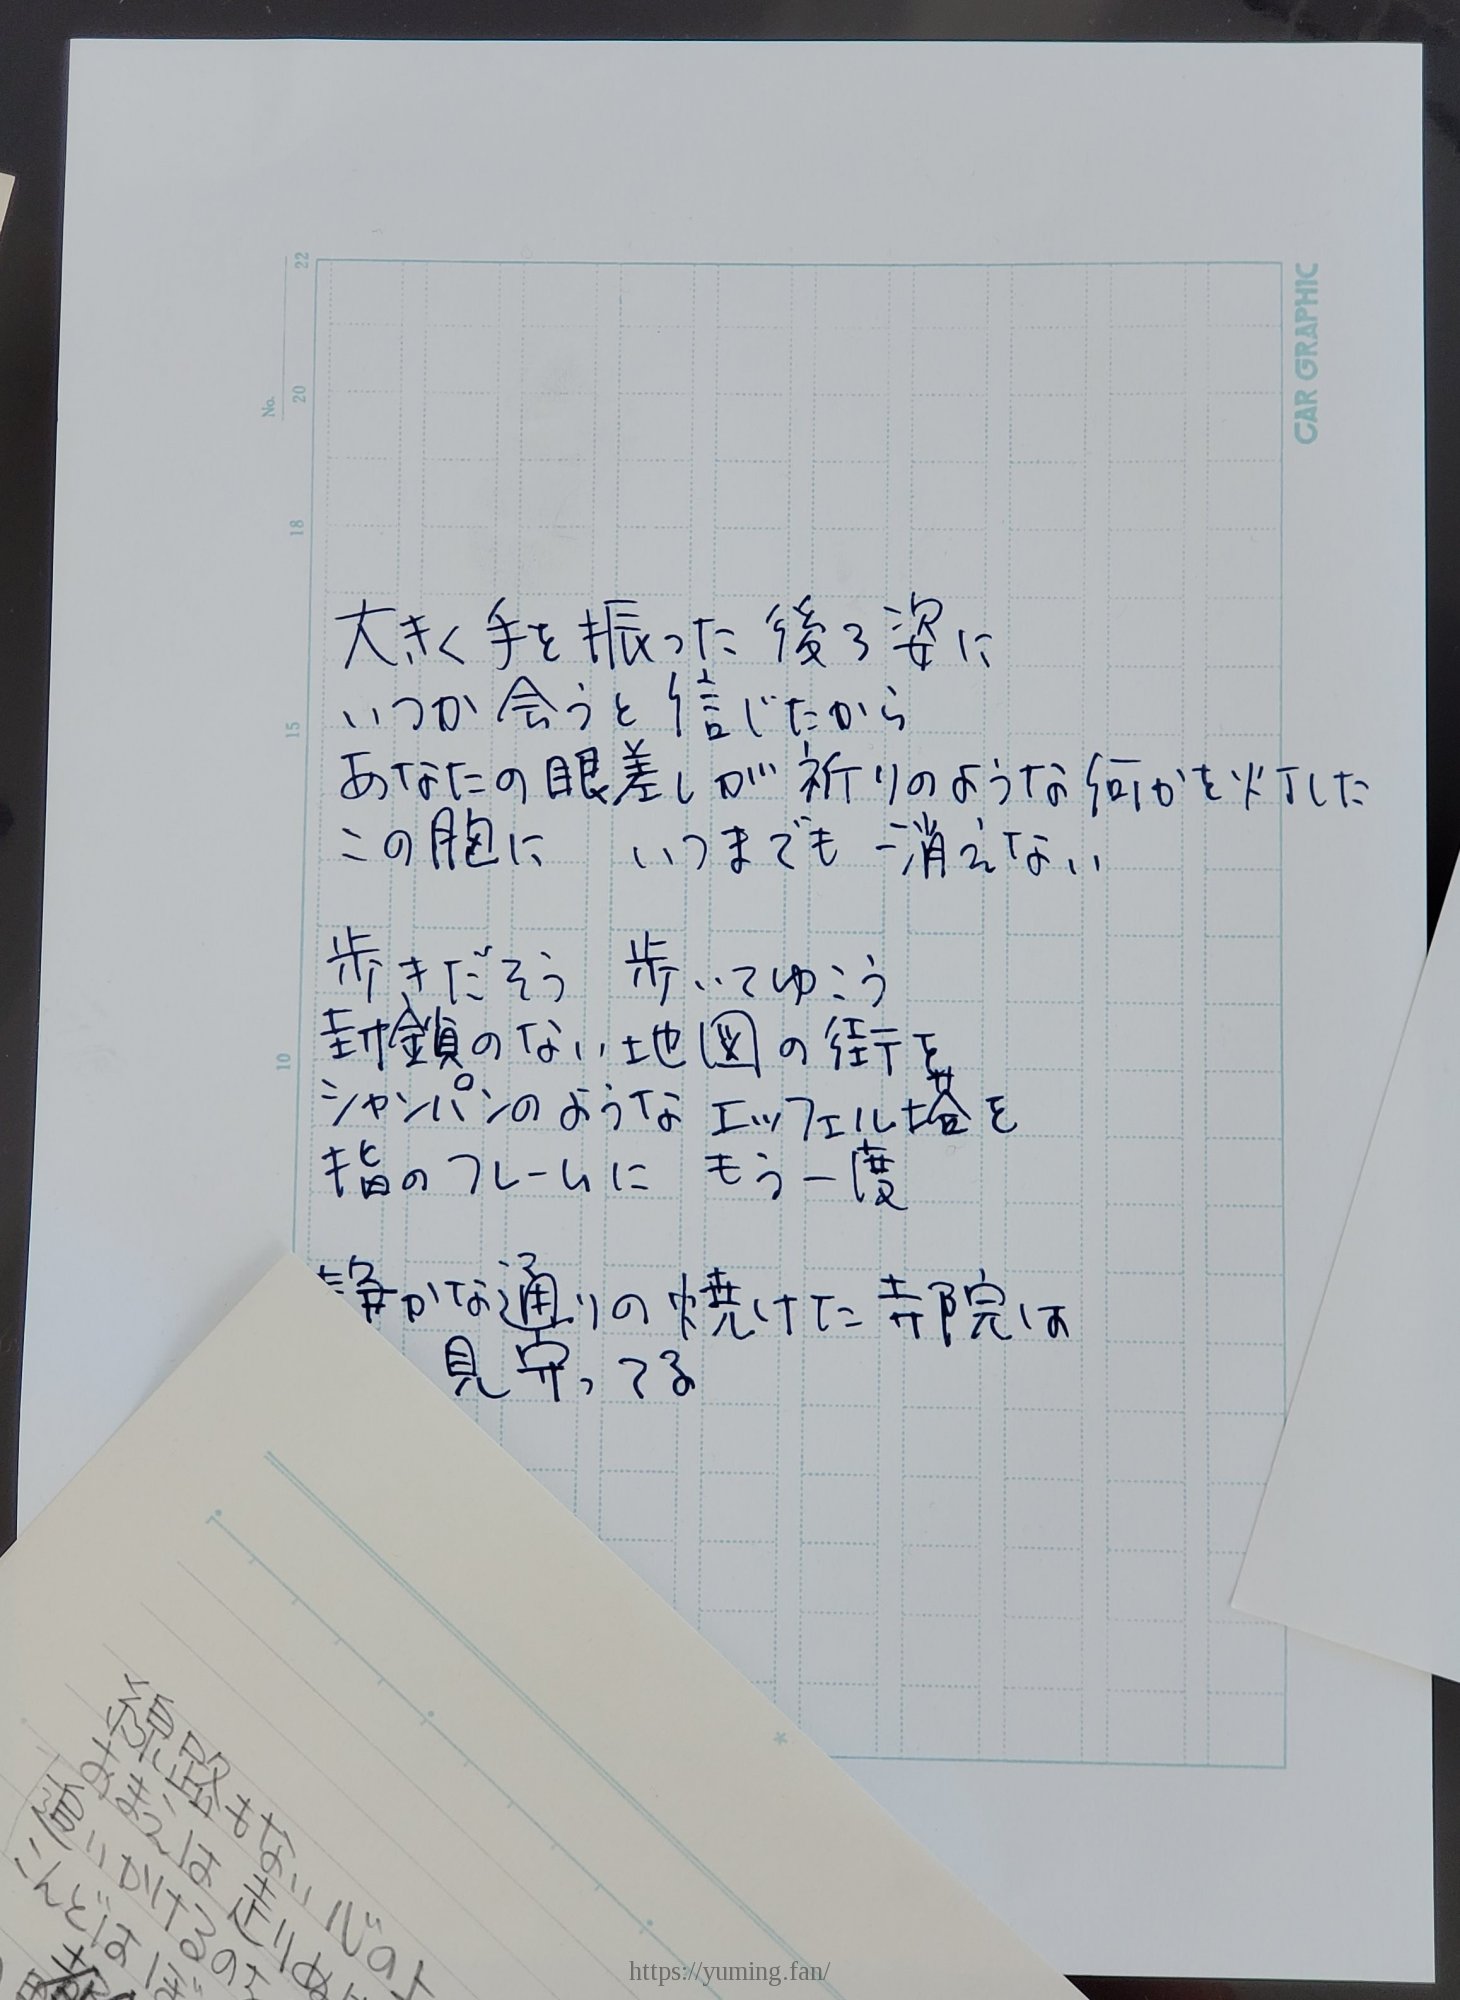 CAR GRAPHIC
No.
22
20
18
15
10
大きく手を振った後ろ姿に
いつか会うと信じたから
あなたの眼差しが祈りのような何かを灯した
この胸に　いつまでも消えない
歩きだそう　歩いてゆこう
封鎖のない地図の街を
シャンパンのようなエッフェル塔を
指のフレームに　もう一度
静かな通りの焼けた寺院は
見守ってる
線路もない心の
おまえは走りぬ
追いかけるの
こんどはぼ
https://yuming.fan/